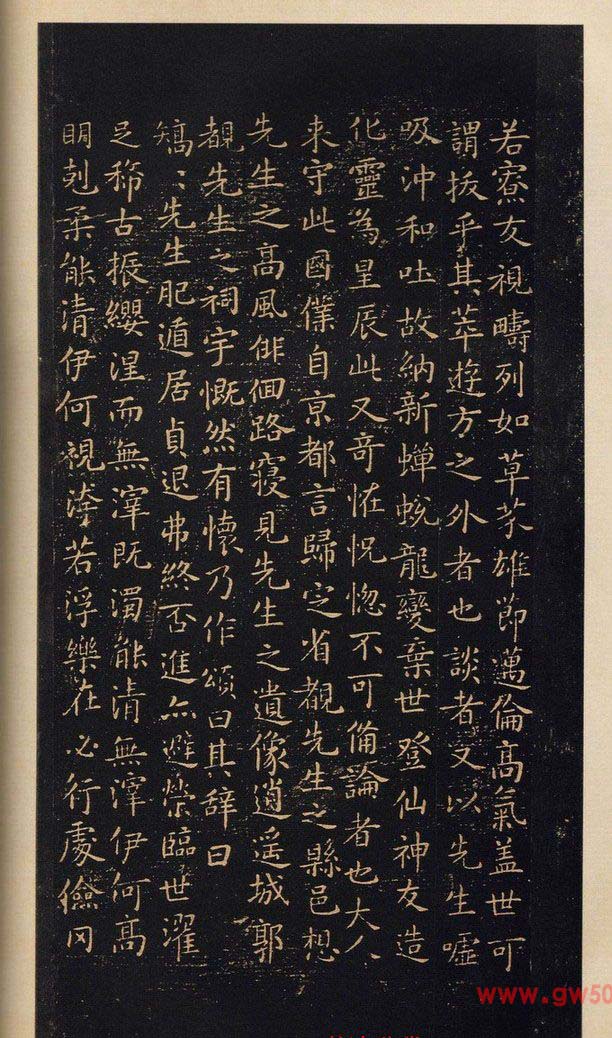 若寮友視疇列如草芥雄節邁倫高氣盖世可
謂拔乎其萃遊方之外者也談者又以先生噓
吸沖和吐故納新蟬蛻龍變棄世登仙神友造
化靈為星辰此又奇怪怳惚不可俻論者也大人
来守此國僕自京都言歸定省覩先生之縣邑想
先生之高風俳佪路寝見先生之遺像逍遥城郭
覩先生之祠宇慨然有懷乃作頌曰其辞曰
矯〻先生肥遁居貞退弗終否進亦避榮臨世濯
足稀古振纓涅而無滓既濁能清無滓伊何高
明剋柔能清伊何視洿若浮樂在必行處儉罔
www.gw50